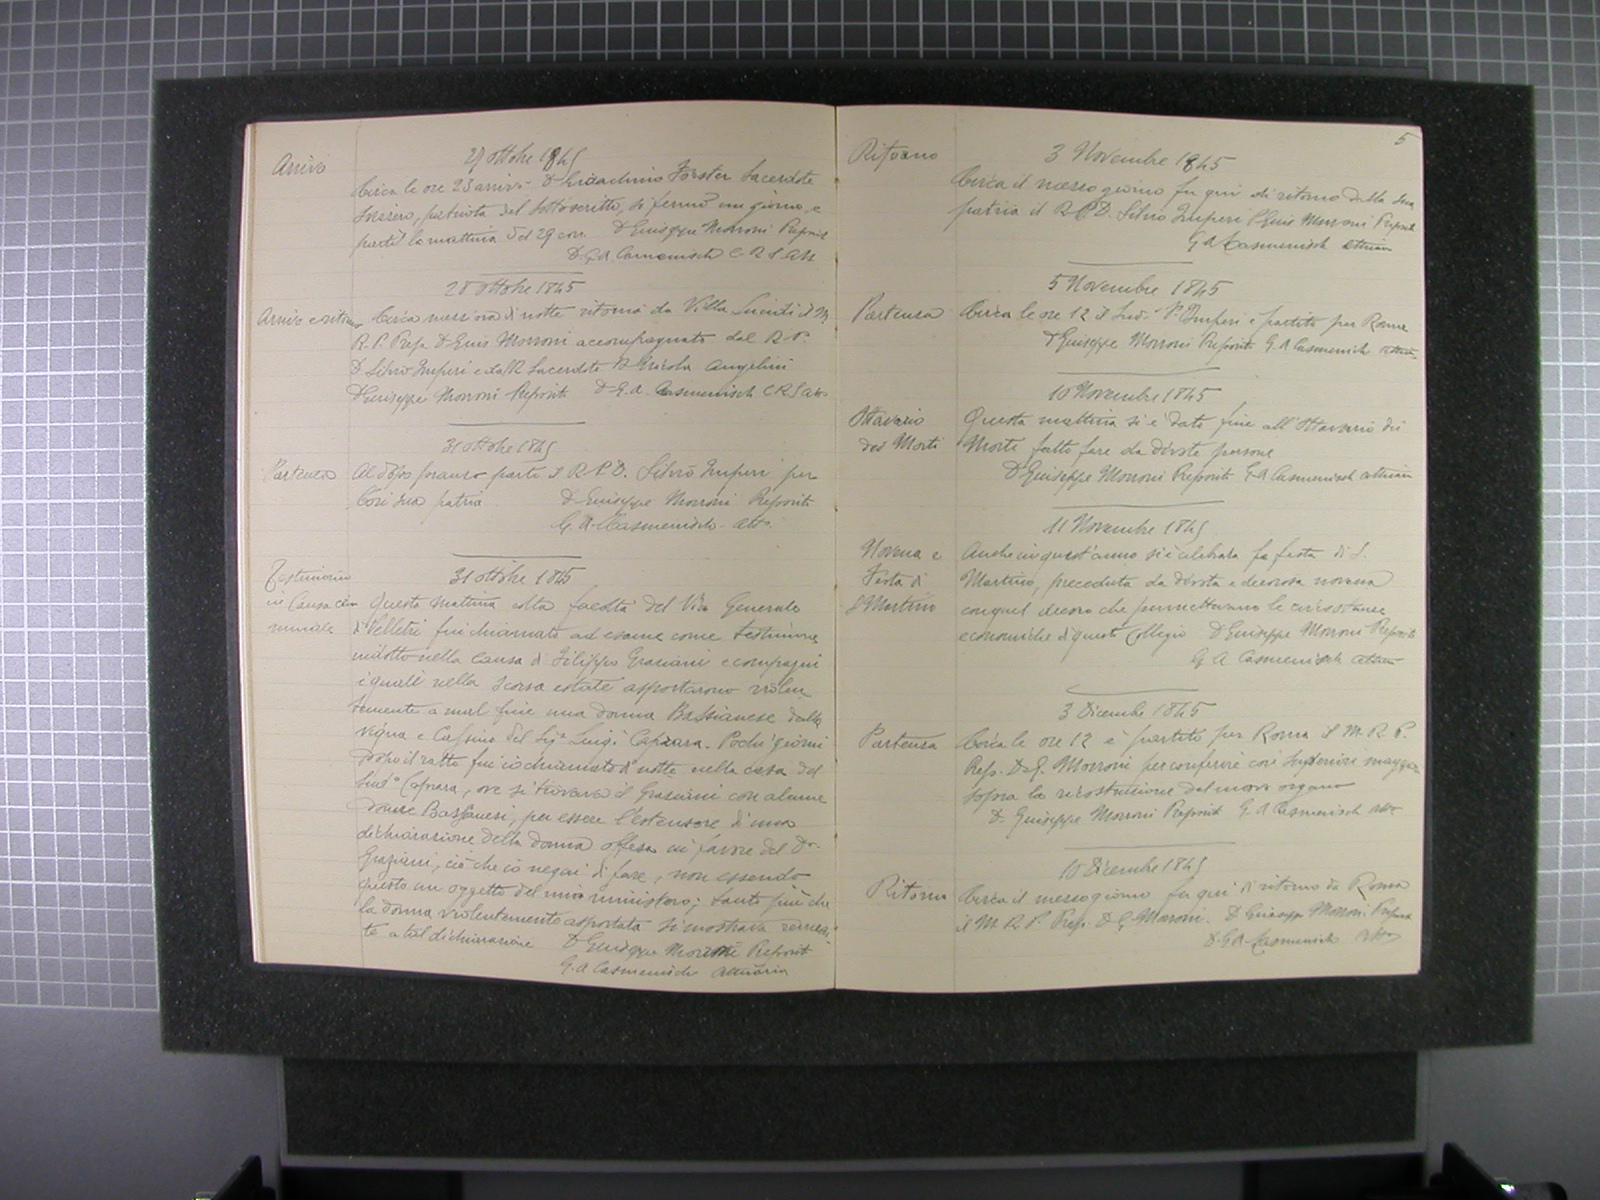 Arrivo
27 Ottobre 1845
Circa le ore 23 arrivò D. Gioachino Förster Sacerdote
Svizzero, patriota del sottoscritto, si fermò un giorno, e
partì la mattina del 29 corr. D. Giuseppe Morroni Preposit
D. G. A. Casmenisch C R S Att.
28 Ottobre 1845
Arrivo e ritorno
Circa mezz'ora di notte ritornò da Villa il M.
R. P. Prep. D. Gius Morroni accompagnato dal R. P.
D. Silvio Imperi e dal R. Sacerdote D. Nicola Angelini
D. Giuseppe Morroni Preposit D. G. A. Casmenisch C R S Att
31 Ottobre 1845
Partenza
Al dopo pranzo partì il R. P. D. Silvio Imperi per
Cori sua patria. D. Giuseppe Morroni Preposito
G. A. Casmenisch Att.
31 Ottobre 1845
Testimonio
in Causa cri
minale
Questa mattina colla facoltà del Vic. Generale
di Velletri fui chiamato ad esame come testimone
indotto nella causa di Filippo Graziani e compagni
i quali nella scorsa estate asportarono violen
temente a mal fine una donna Bassianese dalla
vigna e Casino del Sig. Luigi Caprara. Pochi giorni
dopo il ratto fui io chiamato di notte nella casa del
sud.º Caprara, ove si trovava il Graziani con alcune
donne Bassianesi, per essere l'estensore di una
dichiarazione della donna offesa in favore del D.
Graziani, ciò che io negai di fare, non essendo
questo un oggetto del mio ministero; tanto più che
la donna violentemente asportata si mostrava renuen
te a tal dichiarazione D. Giuseppe Morroni Preposit
G. A. Casmenisch attuario
5
Ritorno
3 Novembre 1845
Circa il mezzo giorno fu qui di ritorno dalla sua
patria il R. P. D. Silvio Imperi D. Gius Morroni Preposit
G. A. Casmenisch attuario
5 Novembre 1845
Partenza
Circa le ore 12 il Sud. P. Imperi è partito per Roma
D. Giuseppe Morroni Preposito G. A. Casmenisch attuario
10 Novembre 1845
Ottavario
dei Morti
Questa mattina si è dato fine all'Ottavario dei
Morti fatto fare da divote persone
D. Giuseppe Morroni Preposito G. A. Casmenisch attuario
11 Novembre 1845
Novena e
Festa di
S. Martino
Anche in quest'anno si è celebrata la festa di S.
Martino, preceduta da divota e decorosa novena
con quel decoro che permettevano le circostanze
economiche di questo Collegio D. Giuseppe Morroni Preposito
G. A. Casmenisch attuario
3 Dicembre 1845
Partenza
Circa le ore 12 è partito per Roma il M. R. P.
Prep. D. G. Morroni per conferire coi Superiori maggiori
sopra la ricostruzione del nuovo organo
D. Giuseppe Morroni Preposit G. A. Casmenisch att.
10 Dicembre 1845
Ritorno
Circa il mezzogiorno fu qui di ritorno da Roma
il M. R. P. Prep. D. G. Morroni. D. Giuseppe Morroni Preposit
D. G. A. Casmenisch Att.